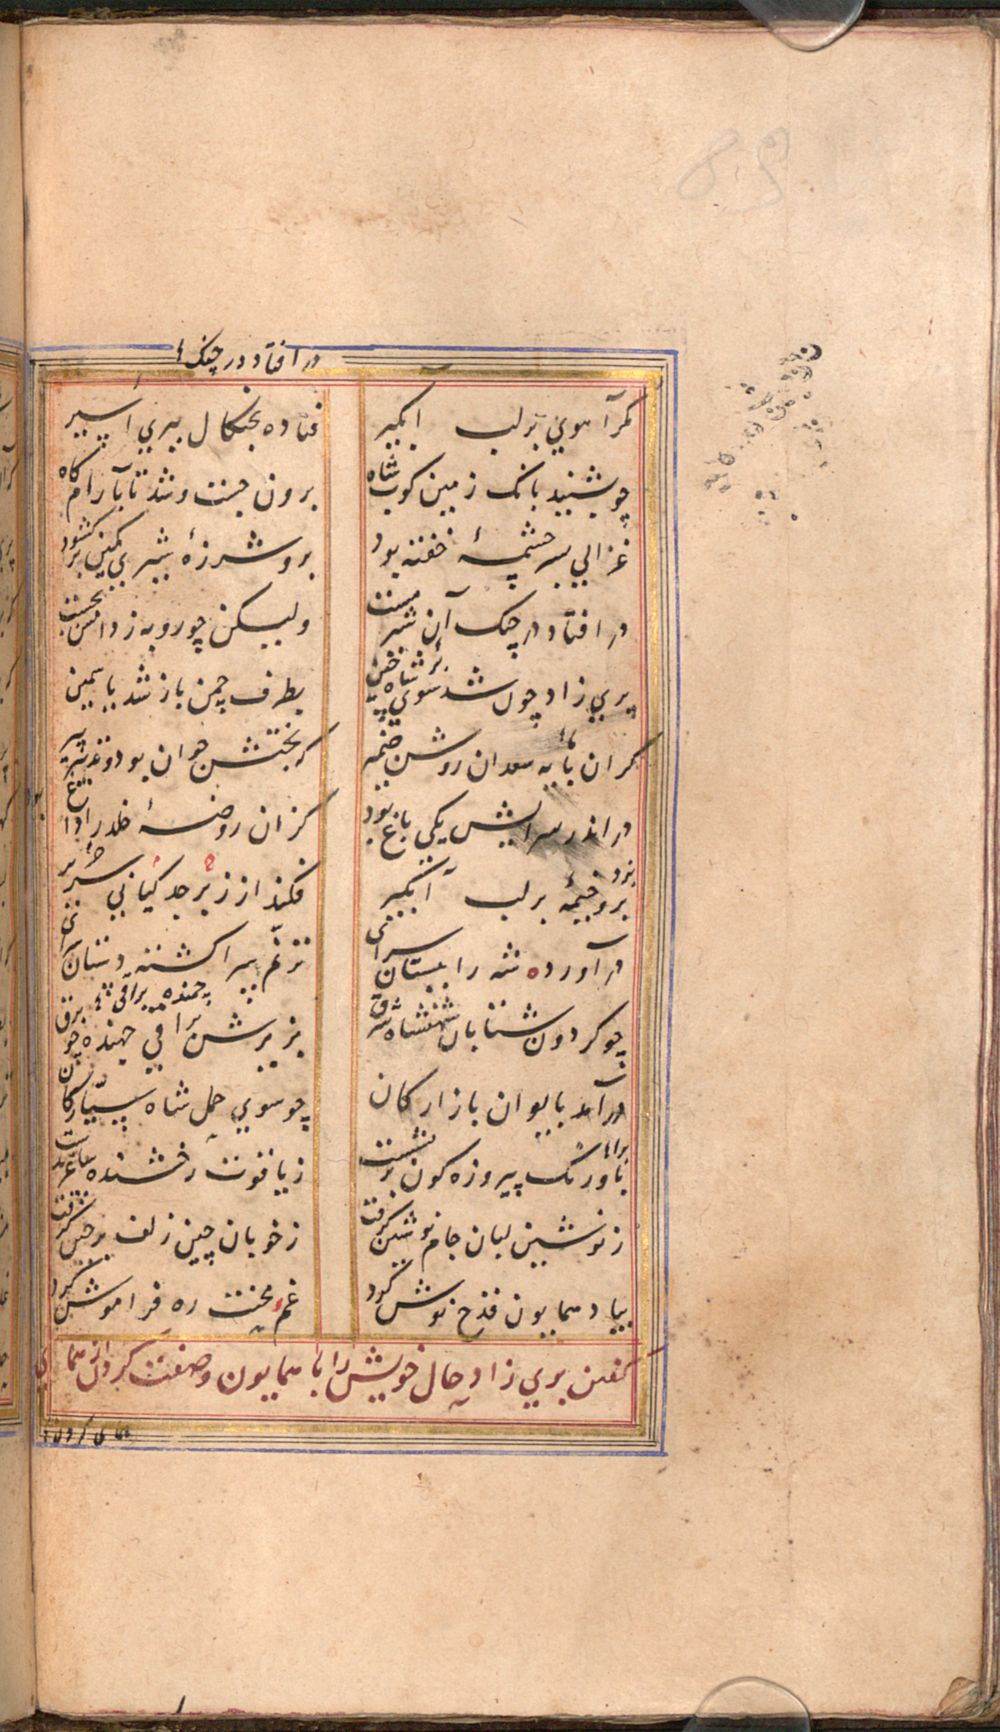 در افتاد در چنک
مکر آهوی بر لب آبکیر
فتاده بچنکال ببری اسیر
چو بشنید بانک زمین کوب شاه
برون جست و شد تا بآرامکاه
غزالی بسر چشمهٔ خفته بود
برو شرزهٔ شیری کمین برکشود
در افتاد در چنک آن شیر مست
ولیکن چو روبه ز دامش بجست
پری زاد چون شد سوی شاه چین
بطرف چمن باز شد یاسمین
کران مایه سعدان روشن ضمیر
که بختش جوان بود و تدبیر پیر
در اندر سرایش یکی باغ بود
کزان روضهٔ خلد را داغ بود
بزد
برو خیمه بر لب آبکیر
فکند از زبرجد کیانی سریر
در آورده شه را ببستان سرای
ترنم سرا کشته دستان
جهنده براقی
چو کردون شتابان شهنشاه شرق
بزیرش براقی جهنده چو برق
در آمد بایوان بازارکان
چو سوی حمل شاه سیارکان
بر اورنک پیروزه کون بر نشست
ز یاقوت رخشنده
ز نوشین لبان جام نوشین کرفت
ز خوبان چین زلف پرچین کرفت
بیاد همایون قدح نوش کرد
غم و محنت ره فراموش کرد
کفتن پری زاد حال خویش را با همایون وصفت کردن از همای
همای کردن